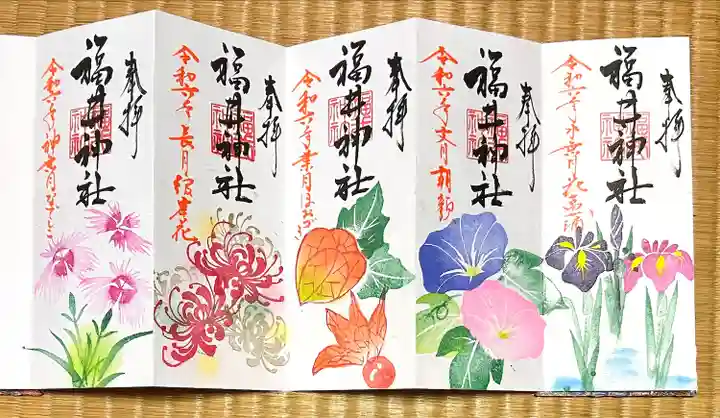 奉拝
福井神社
令和六年水無月花菖蒲
奉拝
福井神社
令和六年文月朝顔
奉拝
福井神社
令和六年葉月ほおずき
奉拝
福井神社
令和六年長月彼岸花
奉拝
福井神社
令和六年神無月なでしこ